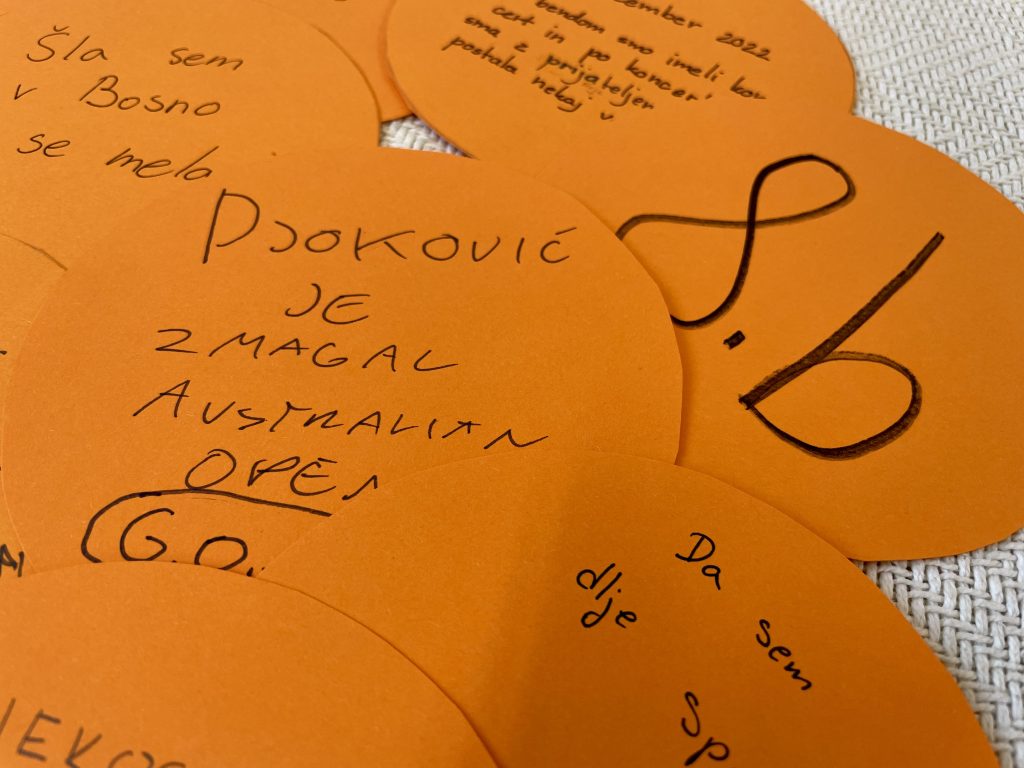 Šla sem
v Bosno
se melo
2022
bendom smo imeli kon
cert in po koncer
sma z prijateljer
postala nekaj
8.b
DJOKOVIĆ
JE
ZMAGAL
AUSTRALIAN
OPEN
G.O.
Da sem
dlje
Sp